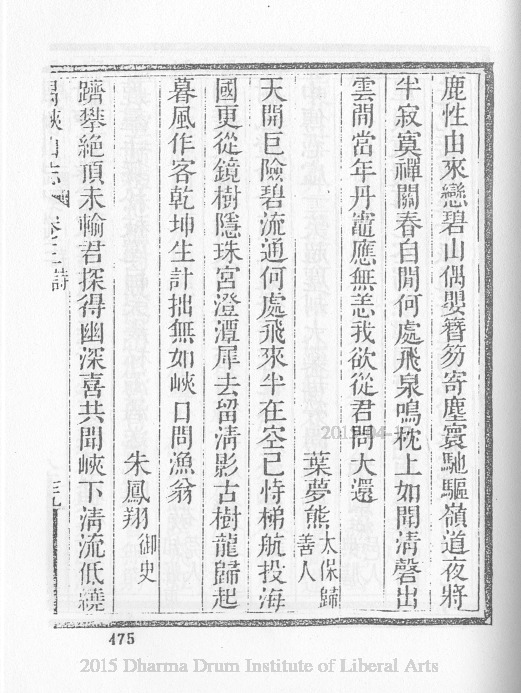 鹿性由來戀碧山偶嬰簪笏寄塵寰馳驅嶺道夜將
半寂寞禪關春自閒何處飛泉鳴枕上如聞清磬出
雲間當年丹竈應無恙我欲從君問大還
葉夢熊太保歸善人
天開巨險碧流通何處飛來半在空已恃梯航投海
國更從鏡樹隱珠宮澄潭犀去留清影古樹龍歸起
暮風作客乾坤生計拙無如峽口問漁翁
朱鳳翔御史
躋攀絕頂未輸君探得幽深喜共聞峽下清流低繞
禺峽山志 卷之 詩
475
2015 Dharma Drum Institute of Liberal Arts